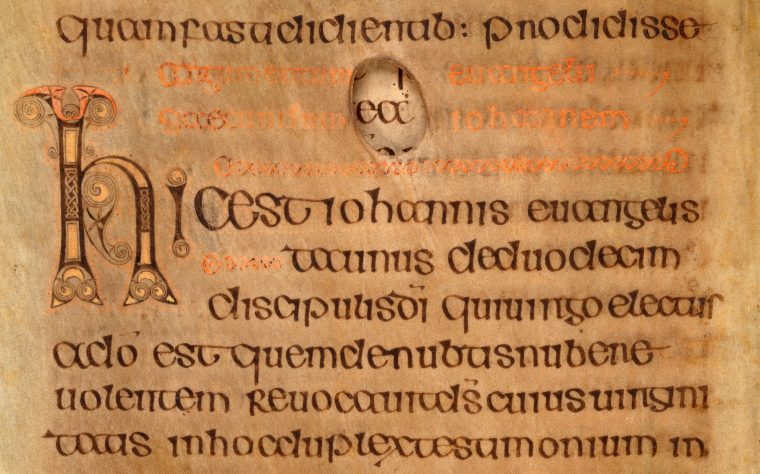 quam fastidientib: prodidisse
Argumentum euangelii
ea
secundum iohannem
hic est iohannis euangelis
ta unus deduodecim
discipulis d̄i qui uirgo electus
ado̅ est quem denubtis nubere
uolentem reuocauit d̄s cuius uirgini
tatis inhoc duplex testimonium in